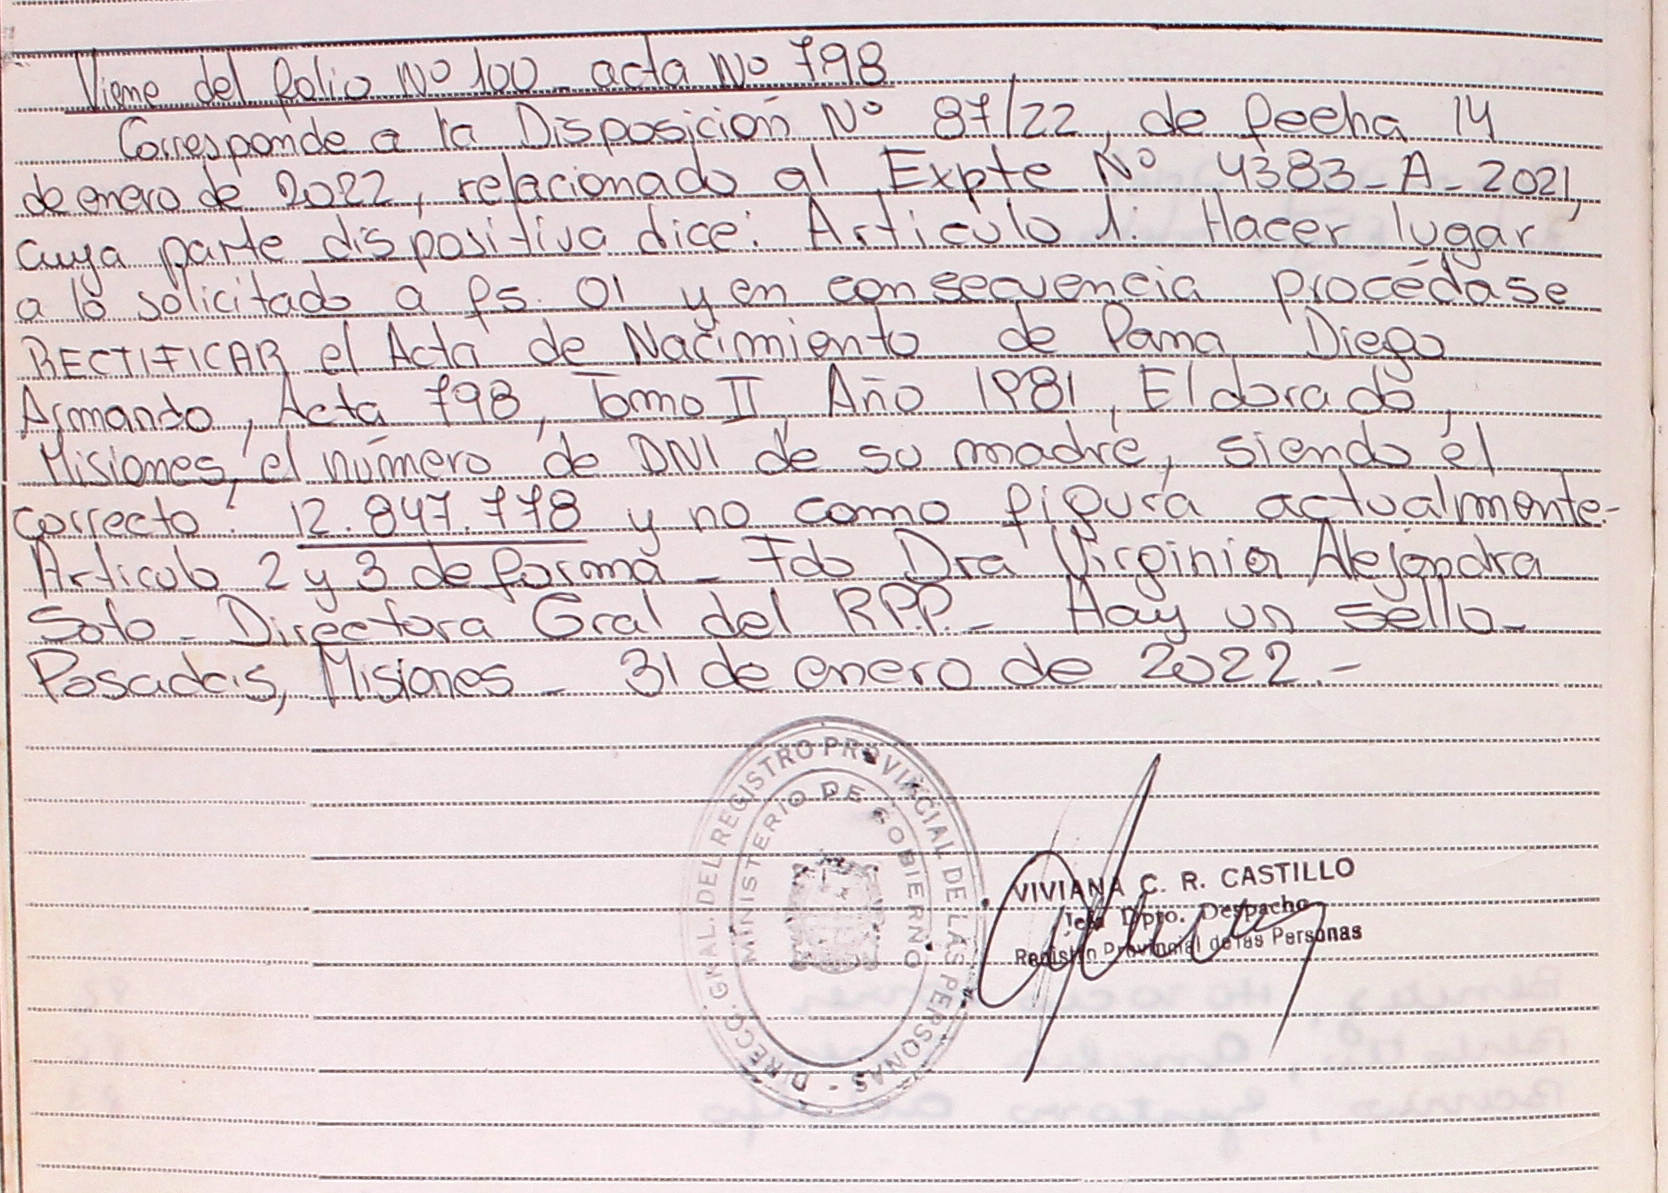 Viene del folio Nº 100 - acta Nº 798
Corresponde a la Disposición Nº 87/22, de fecha 14
de enero de 2022, relacionado al Expte Nº 4383-A-2021,
cuya parte dispositiva dice: Artículo 1: Hacer lugar
a lo solicitado a fs. 01 y en consecuencia procédase
RECTIFICAR el Acta de Nacimiento de Pana, Diego
Armando, Acta 798, Tomo II, Año 1981, Eldorado,
Misiones, el número de DNI de su madre, siendo el
correcto: 12.847.778 y no como figura actualmente.-
Articulo 2 y 3 de forma - Fdo Dra Virginia Alejandra
Soto - Directora Gral del R.P.P. - Hay un sello -
Posadas, Misiones - 31 de enero de 2022.-
DIRECC. GRAL. DEL REGISTRO PROVINCIAL DE LAS PERSONAS -
MINISTERIO DE GOBIERNO
VIVIANA C. R. CASTILLO
Jefa Dpto. Despacho
Registro Provincial de las Personas